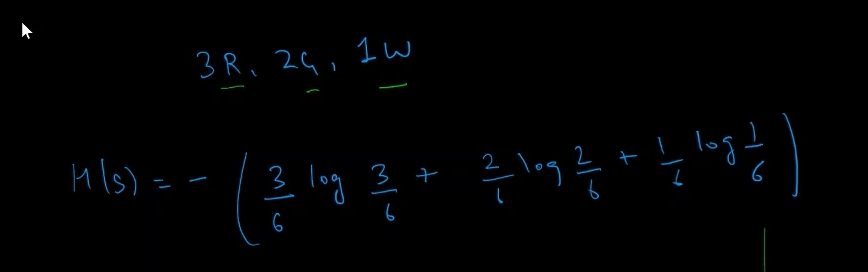 3R, 2G, 1W
H(s) = - ( 3/6 log 3/6 + 2/6 log 2/6 + 1/6 log 1/6 )